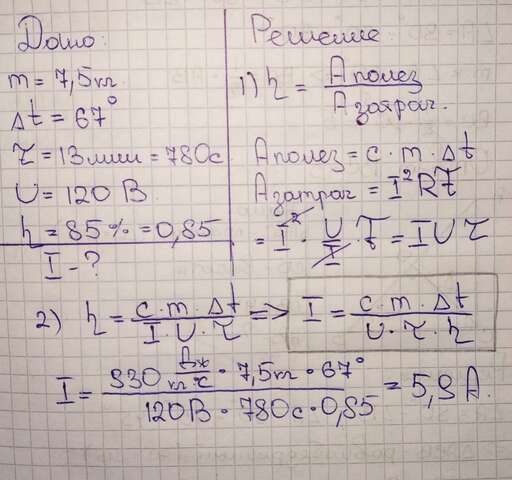 Дано:
m = 7,5 кг
Δt = 67°
τ = 13 мин = 780 с
U = 120 В
η = 85% = 0,85
I - ?
Решение
1) η = Aполез / Aзатрач.
Aполез = c · m · Δt
Aзатрач = I²Rτ
= I² · U/I · τ = I U τ
2) η = c · m · Δt / I · U · τ => I = c · m · Δt / U · τ · η
I = 930 Дж/кг°C · 7,5 кг · 67° / 120 В · 780 с · 0,85 = 5,9 А.